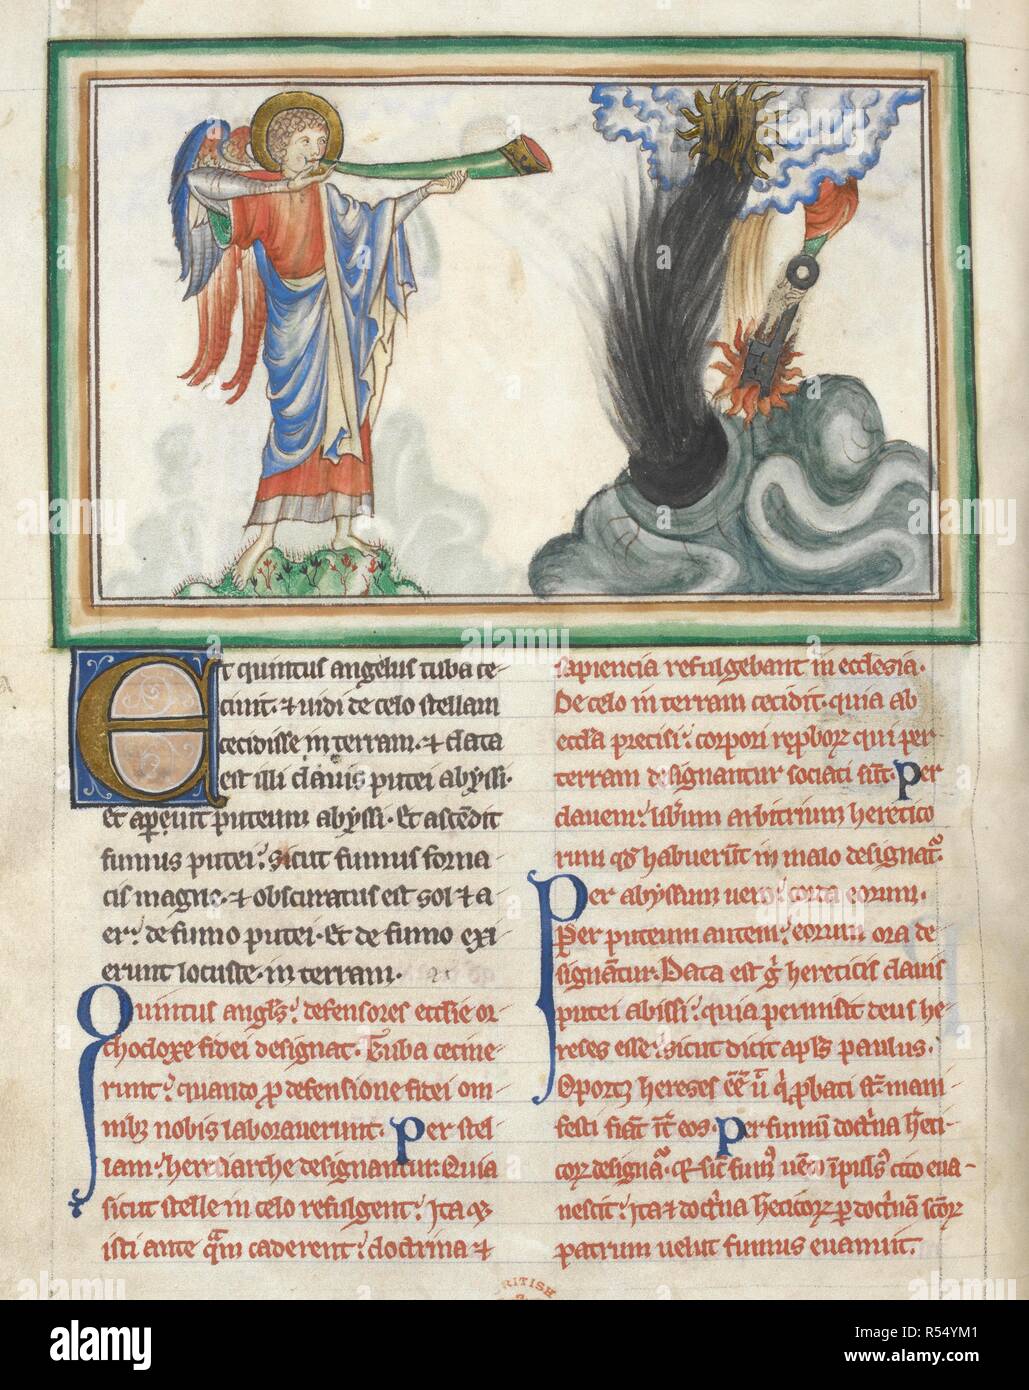 Et quintus angelus tuba ce-
cinit. ⁊ uidi de celo stellam
cecidisse in terram. ⁊ data
est illi clauis putei abyssi.
et aperuit puteum abyssi. Et ascēdit
fumus putei. sicut fumus forna-
cis magne. ⁊ obscuratus est sol ⁊ a-
er. de fumo putei. Et de fumo exi-
erunt locuste. in terram.
Quintus angls. defensores ecclie or-
thodoxe fidei designat. Tuba cecine-
runt. quando ꝓ defensione fidei om-
nibꝫ nobis laborauerunt. Per stel-
lam. heresiarche designantur. Quia
sicut stelle in celo refulgent. Ita qꝫ
isti ante qᵃm caderent. doctrina ⁊
sapiencia refulgebant in ecclesia.
De celo in terram cecidit. quia ab
eccła precisi. corpori reꝓboꝝ qui per
terram designantur sociati sūt. Per
clauem. liberum arbitrium heretico
rum qd habuerūt in malo designatᷣ.
Per abyssum uero. corda eorum.
Per puteum autem. eorum ora de
signātur. Data est gͥ hereticis clauis
putei abissi. quia permisit deus he-
reses esse. sicut dicit apls paulus.
Oportꝫ hereses eē ut qͥ ꝓbati st̄ mani-
festi fiāt īt eos. Per fumū doctͥna hͤti-
coꝝ designāᷣ. qꝛ sic̄ fumꝰ uēto īpulsꝰ cito eua-
nescit. Ita ⁊ doctͥna hereticoꝝ ꝑ doctͥnā scōꝝ
patrum uelut fumus euanuit.
BRITISH
alamy
Image ID: R54YM1
www.alamy.com